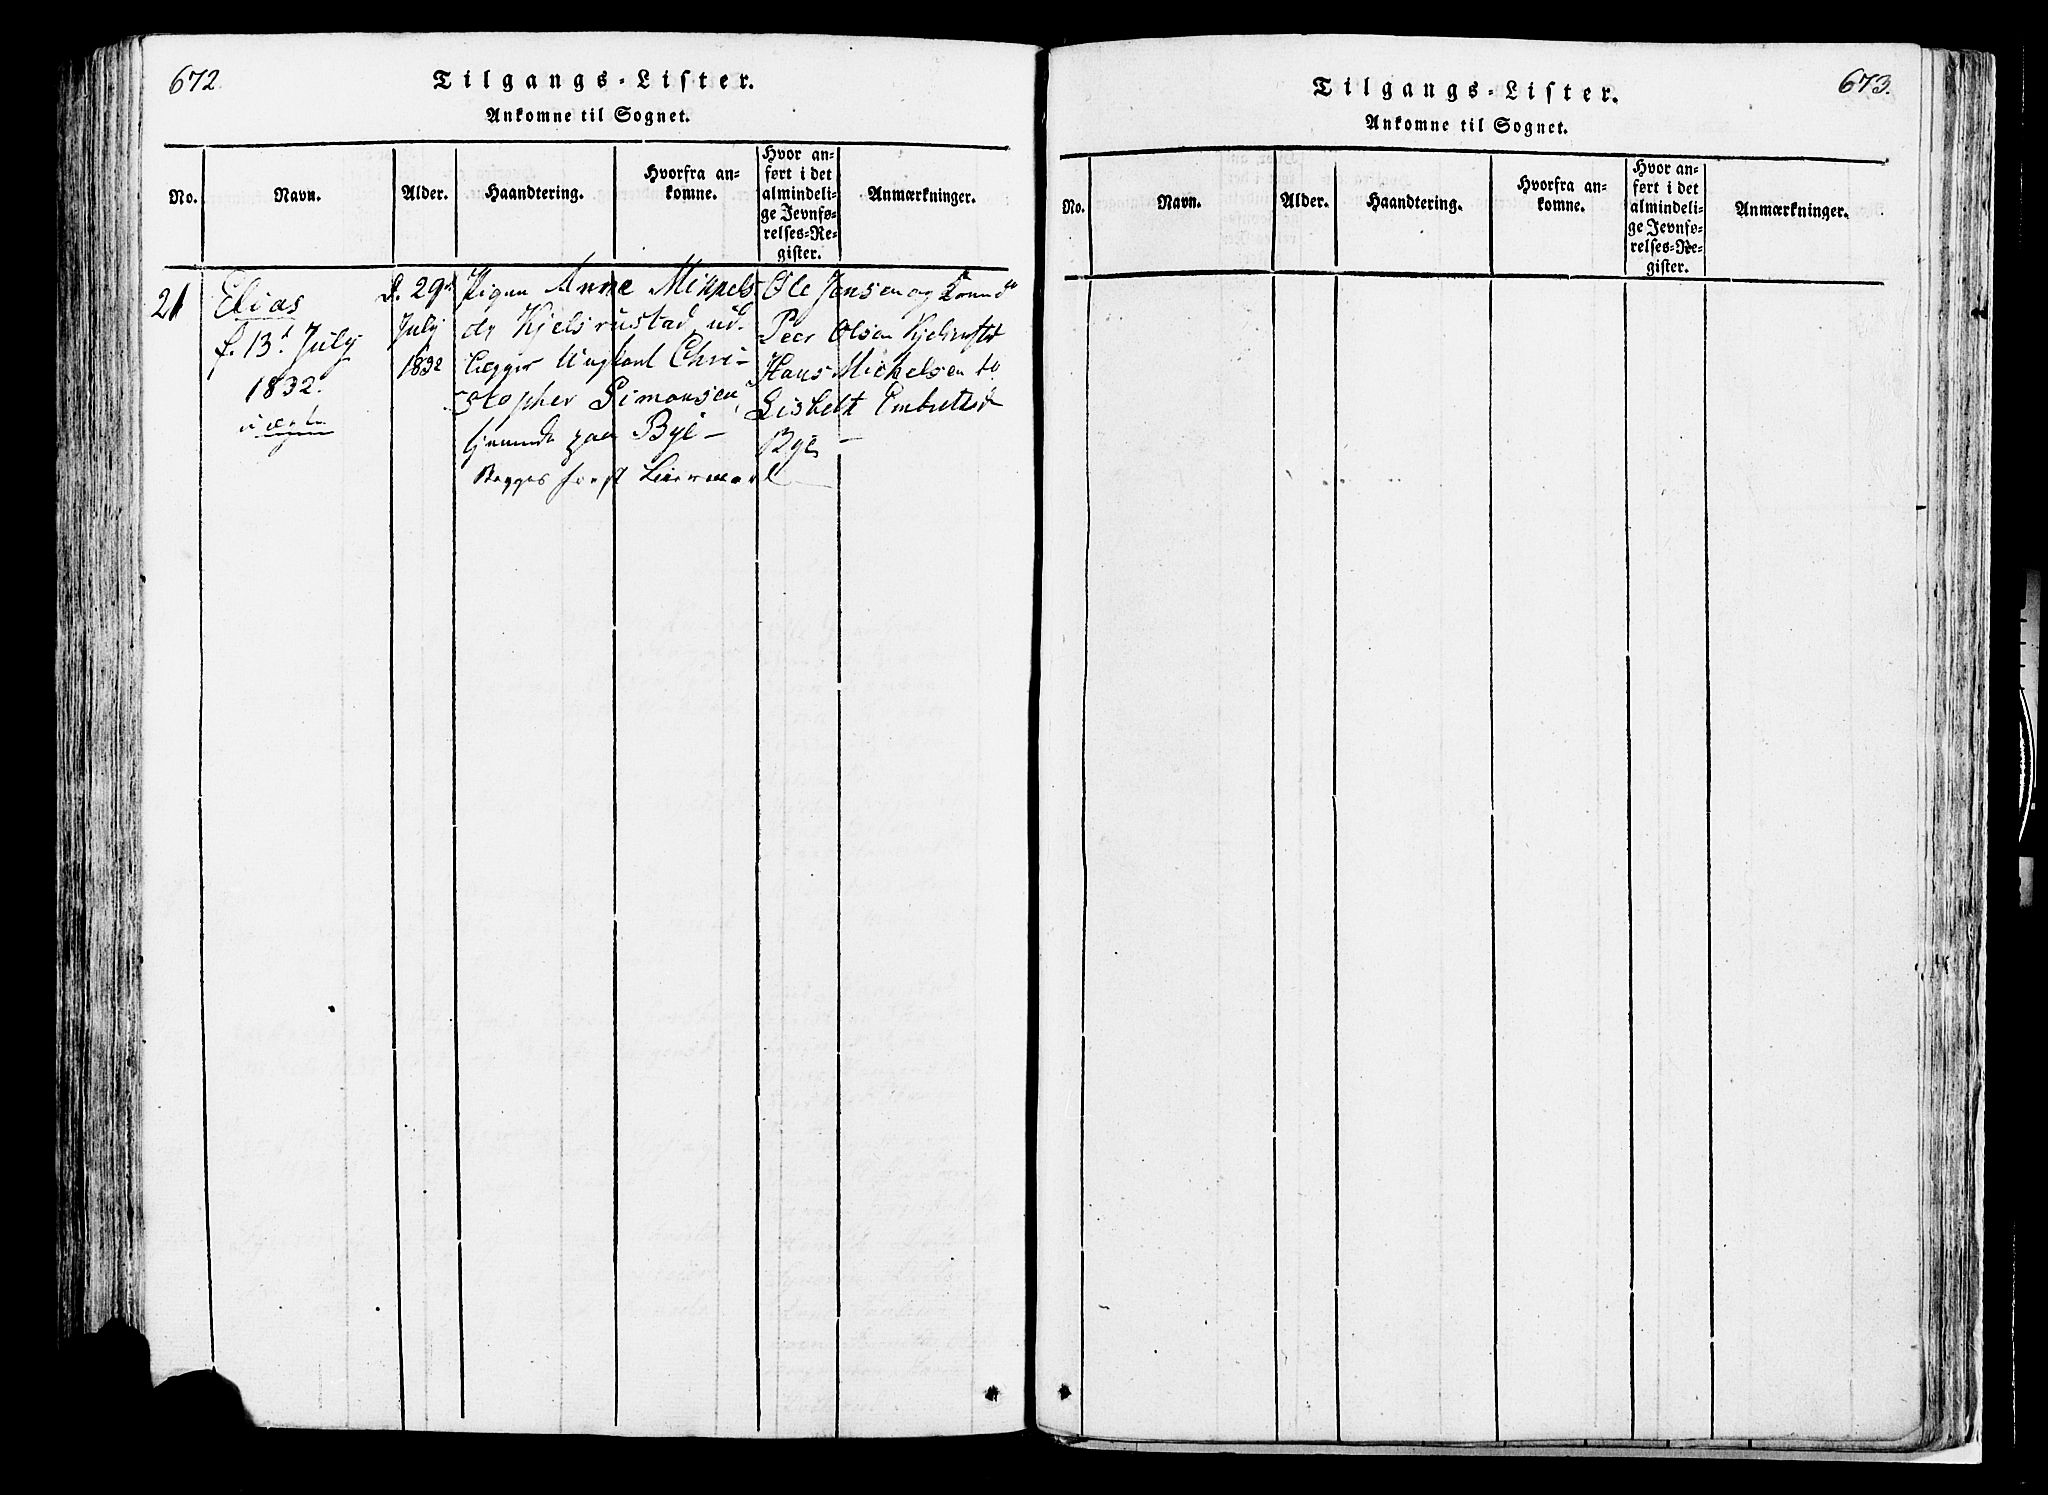 672.
Tilgangs-Lister.
Ankomne til Sognet.
No.
Navn.
Alder.
Haandtering.
Hvorfra an-
komne.
Hvor an-
ført i det
almindeli-
ge Jevnfø-
relses-Re-
gister.
Anmærkninger.
21
Elias
f. 13d July
1832.
u ægte
d. 29d
July
1832
Pigen Anne Mikkels
dr Kjelsrustad ud-
lægger Ungkarl Chri-
stopher Simonsen
tjenende paa Bye -
Begges første Leiermaal
Ole Jensen og
Peer Olsen
Hans Michelsen
Lisbeth Embretsd
Bye -
673.
Tilgangs-Lister.
Ankomne til Sognet.
No.
Navn.
Alder.
Haandtering.
Hvorfra an-
komne.
Hvor an-
ført i det
almindeli-
ge Jevnfø-
relses-Re-
gister.
Anmærkninger.